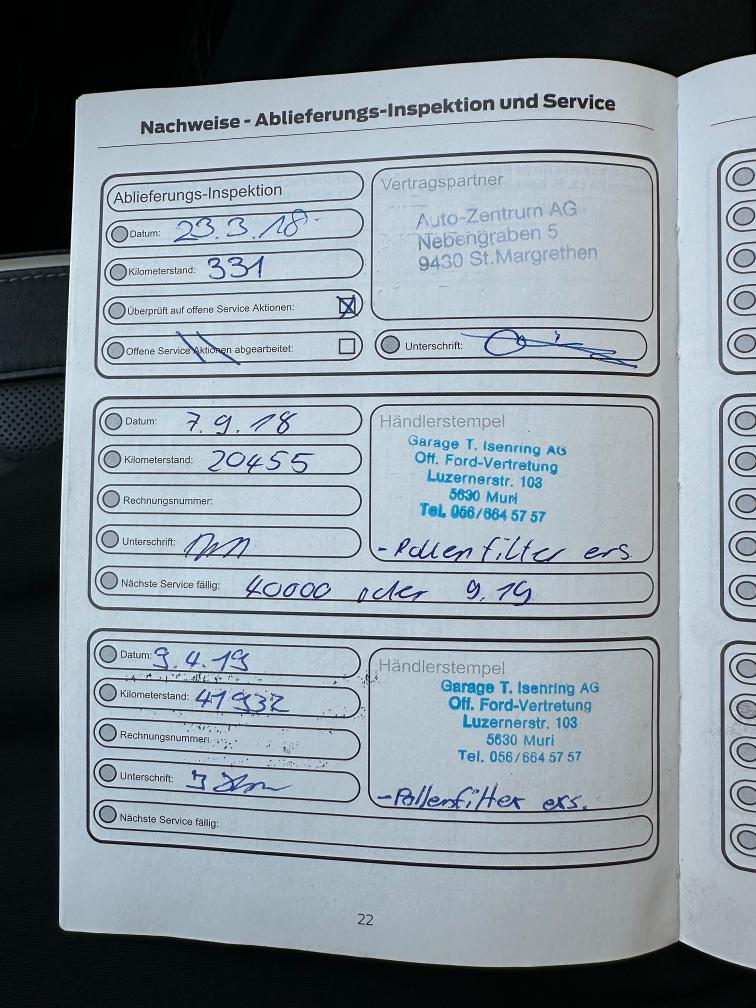 Nachweise - Ablieferungs-Inspektion und Service
Ablieferungs-Inspektion
Datum: 23.3.18
Kilometerstand: 331
Überprüft auf offene Service Aktionen:
Offene Service Aktionen abgearbeitet:
Vertragspartner
Auto-Zentrum AG
Nebengraben 5
9430 St.Margrethen
Unterschrift:
Datum: 7.9.18
Kilometerstand: 20455
Rechnungsnummer:
Unterschrift:
Händlerstempel
Garage T. Isenring AG
Off. Ford-Vertretung
Luzernerstr. 103
5630 Muri
Tel. 056/664 57 57
-Pollenfilter ers.
Nächste Service fällig: 40000 oder 9.19
Datum: 9.4.19
Kilometerstand: 41932
Rechnungsnummer:
Unterschrift:
Händlerstempel
Garage T. Isenring AG
Off. Ford-Vertretung
Luzernerstr. 103
5630 Muri
Tel. 056/664 57 57
-Pollenfilter ers.
Nächste Service fällig:
22